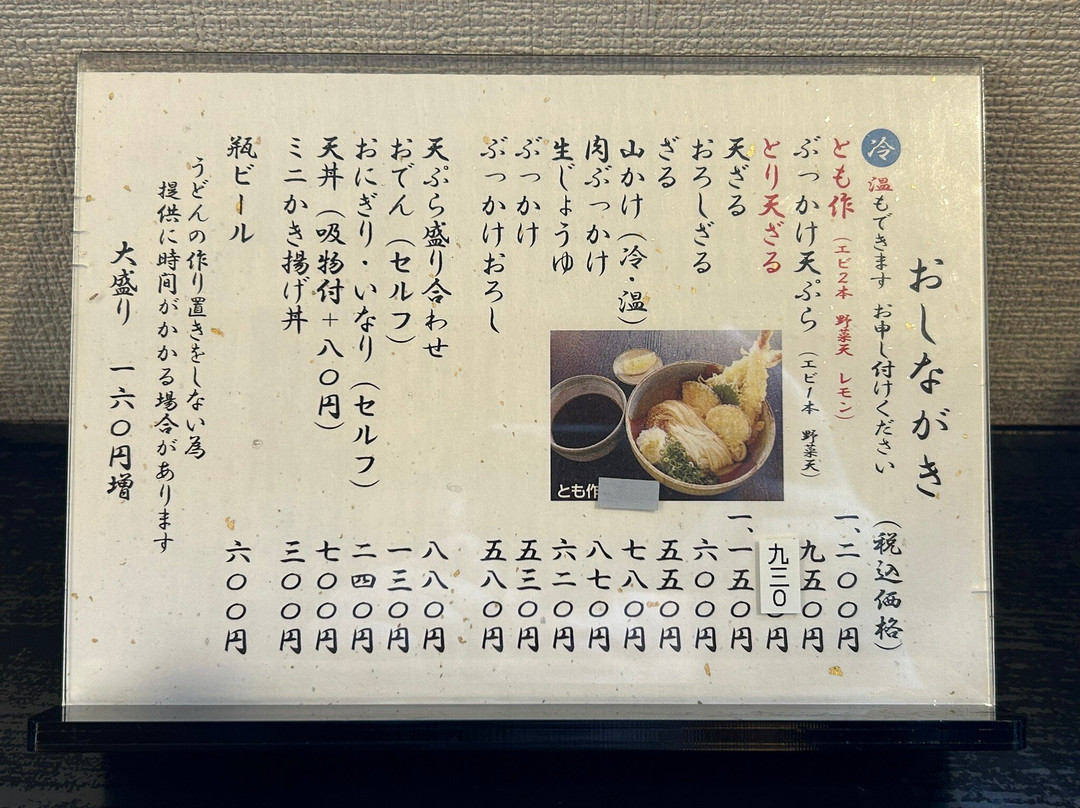 おしながき
(税込価格)
冷 温もできます お申し付けください
とも作 (エビ2本 野菜天 レモン) 一、二〇〇円
ぶっかけ天ぷら (エビ1本 野菜天) 九五〇円
とり天ざる 九三〇円
天ざる 一、一五〇円
おろしざる 六〇〇円
ざる 五五〇円
山かけ(冷・温) 七八〇円
肉ぶっかけ 八七〇円
生じょうゆ 六二〇円
ぶっかけ 五三〇円
ぶっかけおろし 五八〇円
天ぷら盛り合わせ 八八〇円
おでん(セルフ) 一三〇円
おにぎり・いなり(セルフ) 二四〇円
天丼(吸物付+八〇円) 七〇〇円
ミニかき揚げ丼 三〇〇円
瓶ビール 六〇〇円
うどんの作り置きをしない為
提供に時間がかかる場合があります
大盛り 一六〇円増
とも作